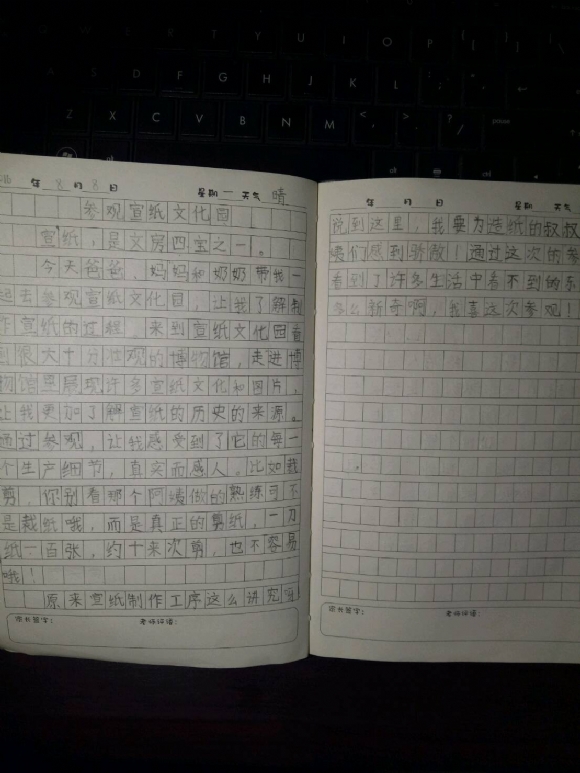 年 8 月 8 日 星期 一 天气 晴
参观宣纸文化园
宣纸，是文房四宝之一。
今天爸爸，妈妈和奶奶带我一
起去参观宣纸文化园，让我了解制
作宣纸的过程，来到宣纸文化园看
到很大十分壮观的博物馆，走进博
物馆里展现许多宣纸文化和图片，
让我更加了解宣纸的历史的来源。
通过参观，让我感受到了它的每一
个生产细节，真实而感人。比如裁
剪，你别看那个阿姨做的熟练可不
是裁纸哦，而是真正的剪纸，一刀
纸一百张，约十来次剪，也不容易
哦！
原来宣纸制作工序这么讲究
家长签字： 老师评语：
年 月 日 星期 天气
说到这里，我要为造纸的叔叔
姨们感到骄傲！通过这次的参
看到了许多生活中看不到的东
多么新奇啊，我喜这次参观！
家长签字： 老师评语：
Q W E R T Y U I O P
A S D F G H J K L
Z X C V B N M
pause